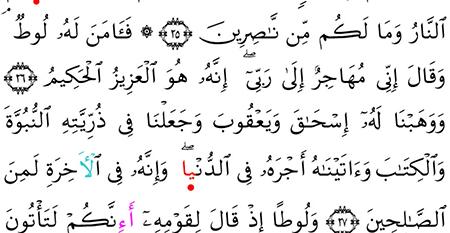 ٱلنَّارُ وَمَا لَكُم مِّن نَّٰصِرِينَ ٢٥ ۞ فَـَٔامَنَ لَهُۥ لُوطٌۘ
وَقَالَ إِنِّى مُهَاجِرٌ إِلَىٰ رَبِّىٓۖ إِنَّهُۥ هُوَ ٱلْعَزِيزُ ٱلْحَكِيمُ ٢٦
وَوَهَبْنَا لَهُۥٓ إِسْحَٰقَ وَيَعْقُوبَ وَجَعَلْنَا فِى ذُرِّيَّتِهِ ٱلنُّبُوَّةَ
وَٱلْكِتَٰبَ وَءَاتَيْنَٰهُ أَجْرَهُۥ فِى ٱلدُّنْيا ۖ وَإِنَّهُۥ فِى ٱلْأَخِرَةِ لَمِنَ
ٱلصَّٰلِحِينَ ٢٧ وَلُوطًا إِذْ قَالَ لِقَوْمِهِۦٓ أَءِنَّكُمْ لَتَأْتُونَ